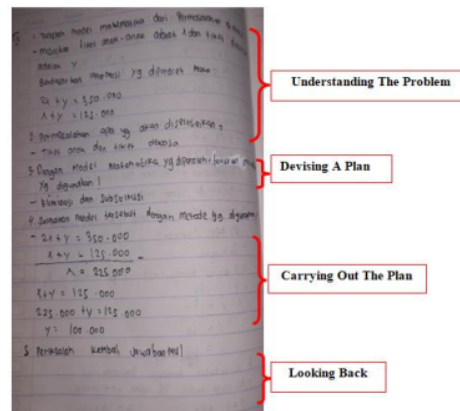 1. Tuliskan model matematika dari Permasalahan
- misalkan tiket anak-anak adalah x dan tiket
adalah y
Berdasarkan informasi yg diperoleh maka
2x + y = 350.000
x + y = 125.000
2. Permasalahan apa yg akan diselesaikan?
- Tiket anak dan tiket dewasa
3. Dengan model matematika yg diperoleh
yg digunakan!
- Eliminasi dan Subsitusi
4. model tersebut dengan metode yg digunakan
- 2x + y = 350.000
x + y = 125.000 -
x = 225.000
x + y = 125.000
225.000 + y = 125.000
y = 100.000
5. Periksalah kembali jawaban mu!
Understanding The Problem
Devising A Plan
Carrying Out The Plan
Looking Back